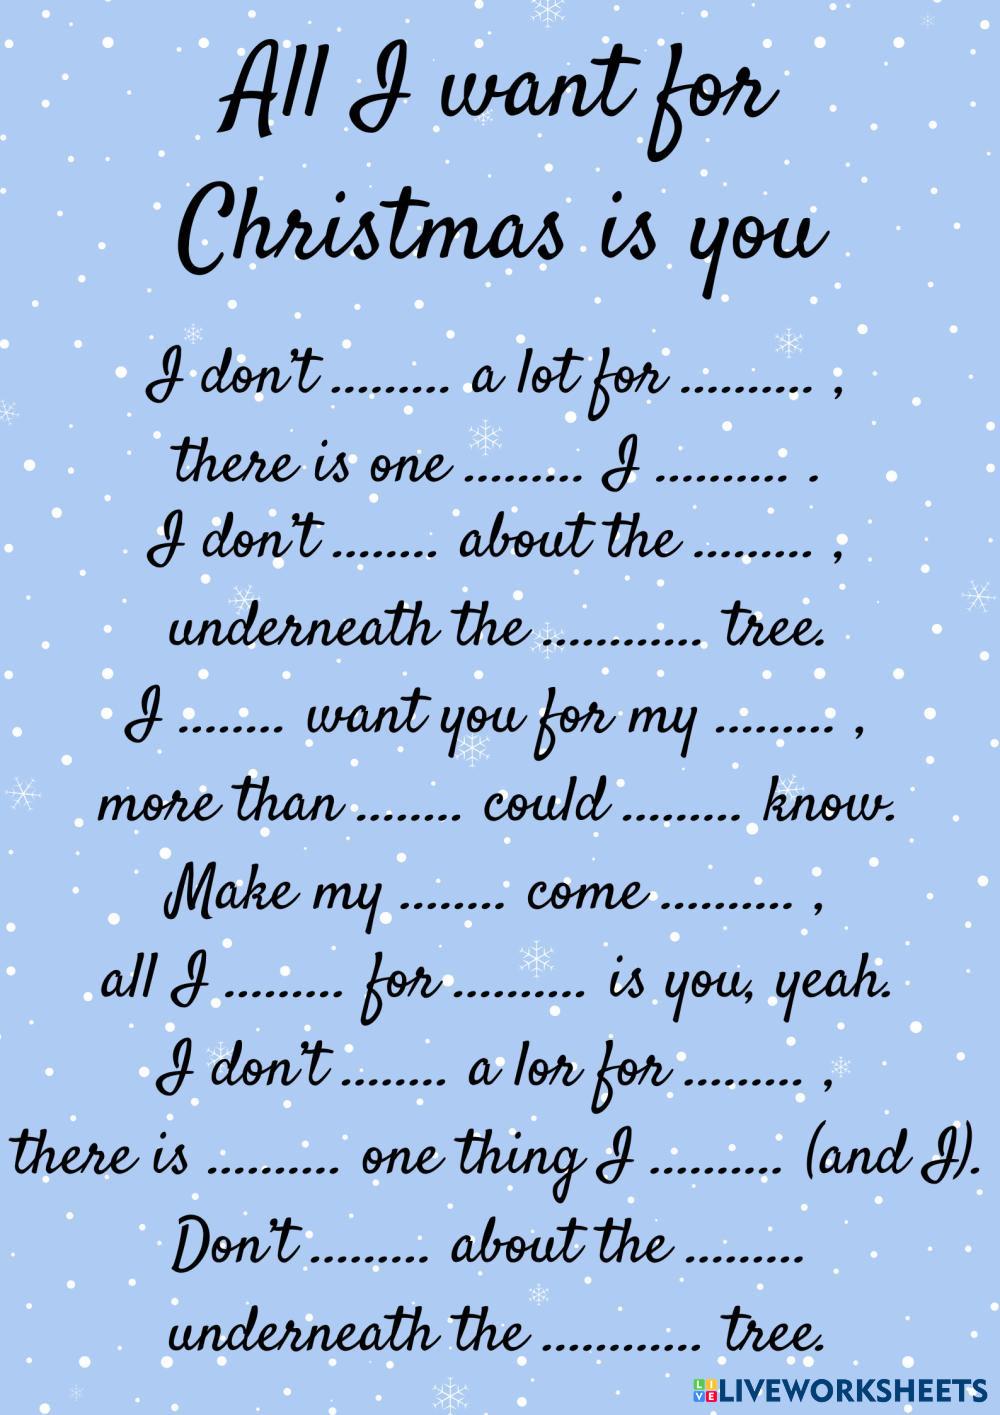 All I want for
Christmas is you
I don't ......... a lot for .......... ,
there is one ......... I .......... .
I don't ........ about the ......... ,
underneath the ............ tree.
I ........ want you for my ......... ,
more than ........ could ......... know.
Make my ........ come .......... ,
all I ......... for .......... is you, yeah.
I don't ........ a lor for ......... ,
there is .......... one thing I .......... (and I).
Don't ......... about the .........
underneath the ............ tree.
LIVE LIVEWORKSHEETS